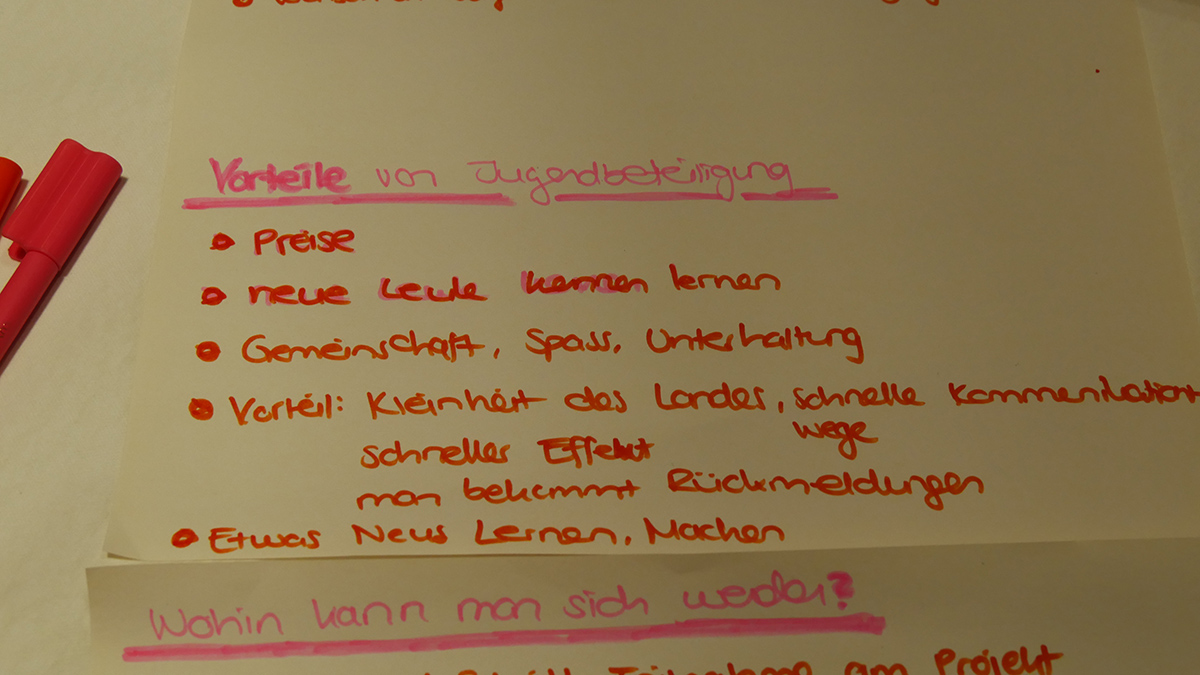 Vorteile von Jugendbeteiligung
• Preise
• neue Leute kennen lernen
• Gemeinschaft, Spass, Unterhaltung
• Vorteil: Kleinheit des Landes, schnelle Kommunikations
wege
schneller Effekt
man bekommt Rückmeldungen
• Etwas Neus Lernen, Machen
Wohin kann man sich wenden?
am Projekt